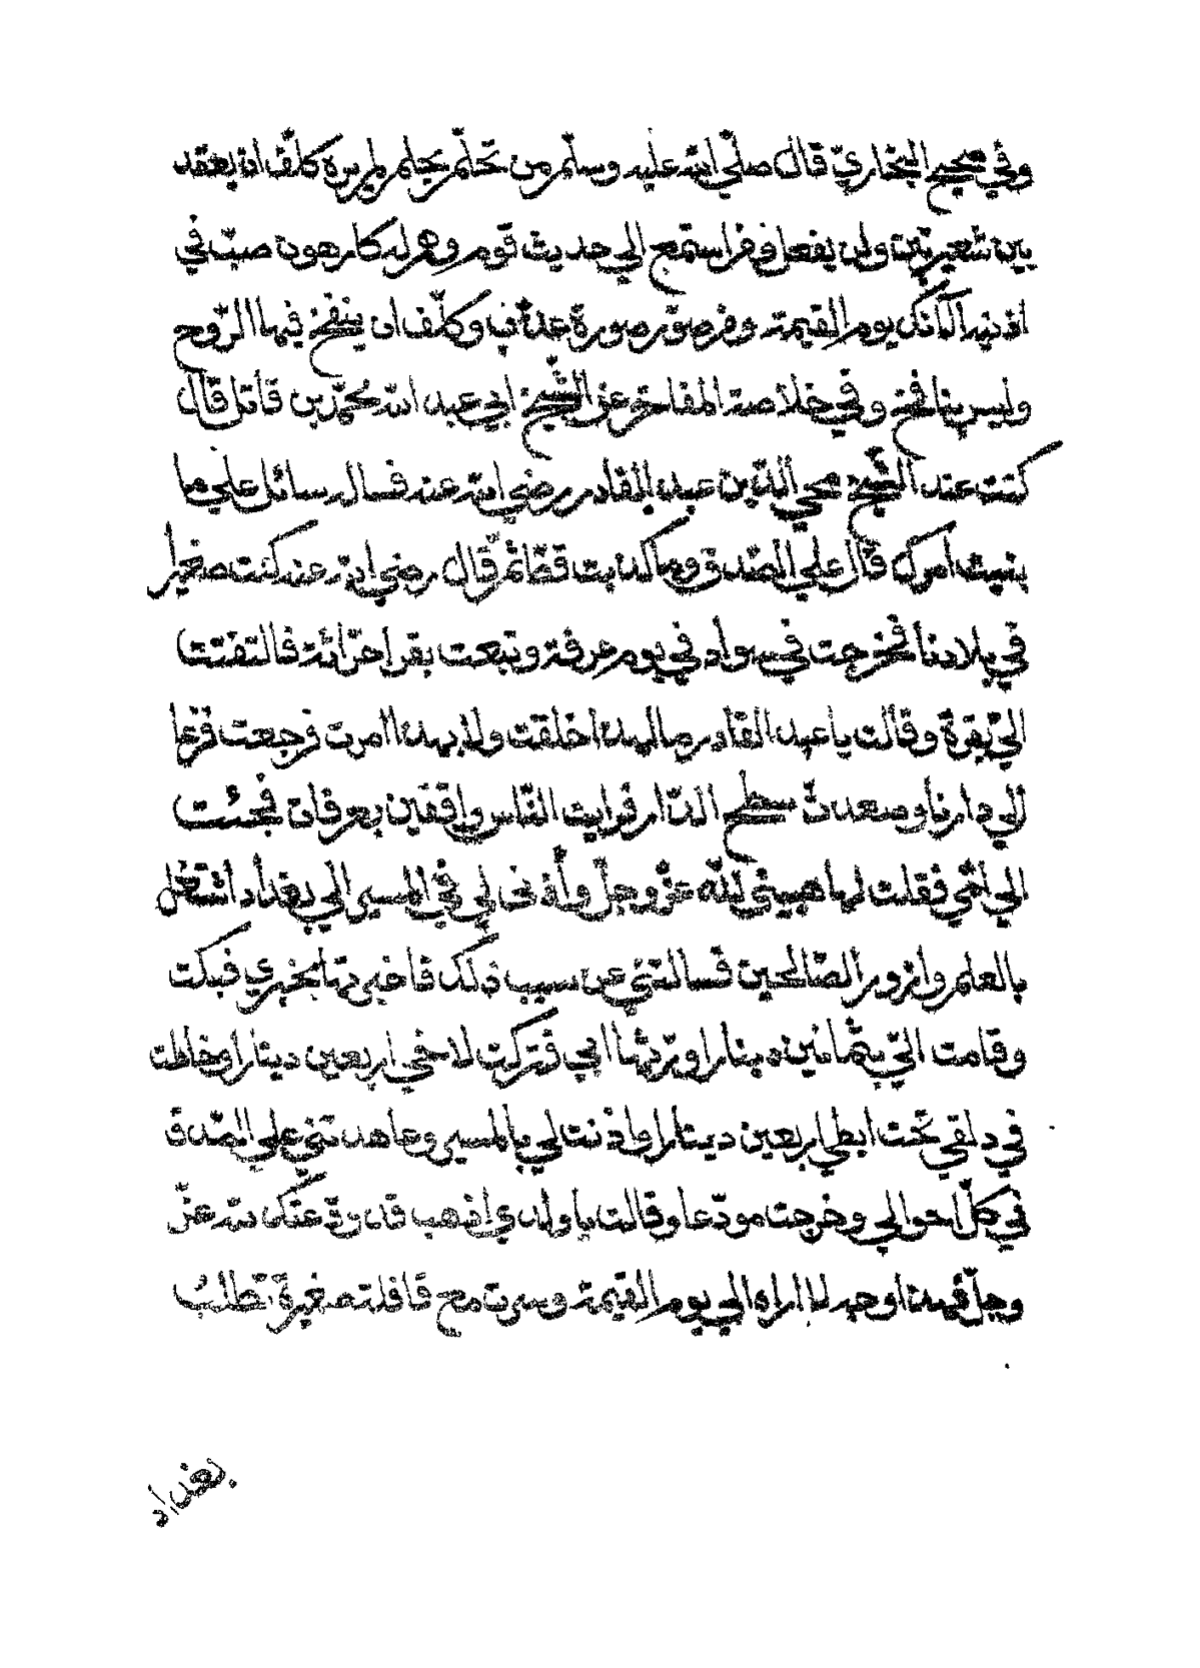 وفي صحيح البخاريّ قال صلّي الله عليه وسلّم من تحلّم بحلم لم يره كلّف ان يعقد
بين شعيرتين ولن يفعل ومن استمع الي حديث قوم وهم له كارهون صبّ في
اذنيه الآنك يوم القيمة ومن صوّر صورة عذّب وكلّف ان ينفخ فيها الرّوح
وليس بنافخ وفي خلاصة المفاخر عن الشّيخ ابي عبد الله محمّد بن قائل قال
كنت عند الشّيخ محي الدّين عبد القادر رضي الله عنه فساله سائل علي ما
بنيت امرك قال علي الصّدق وما كذبت قطّ ثمّ قال رضي الله عنه كنت صغيرا
في بلادنا فخرجت في سواد في يوم عرفة وتبعت بقر احرّاثة فالتفتت
اليّ بقرة وقالت يا عبد القادر ما لهذا خلقت ولا بهذا امرت فرجعت فزعا
الي دارنا وصعدت سطح الدّار فرايت النّاس واقفين بعرفات فجئت
الي امّي فقلت لها هبيني لله عزّ وجلّ وأذني لي في المسير الي بغداد اشتغل
بالعلم وازور الصّالحين فسالتني عن سبب ذلك فاخبرتها بخبري فبكت
وقامت اليّ بثمانين دينارا ورّثها ابي فتركت لاخي اربعين دينارا وخاطت
في دلقي تحت ابطي اربعين دينارا واذنت لي بالمسير وعاهدتني علي الصّدق
في كلّ احوالي وخرجت مودّعا وقالت يا ولدي اذهب قد ودّعتك لله عزّ
وجلّ فهذا وجه لا اراه الي يوم القيمة وسرت مع قافلة صغيرة تطلب
بغداد